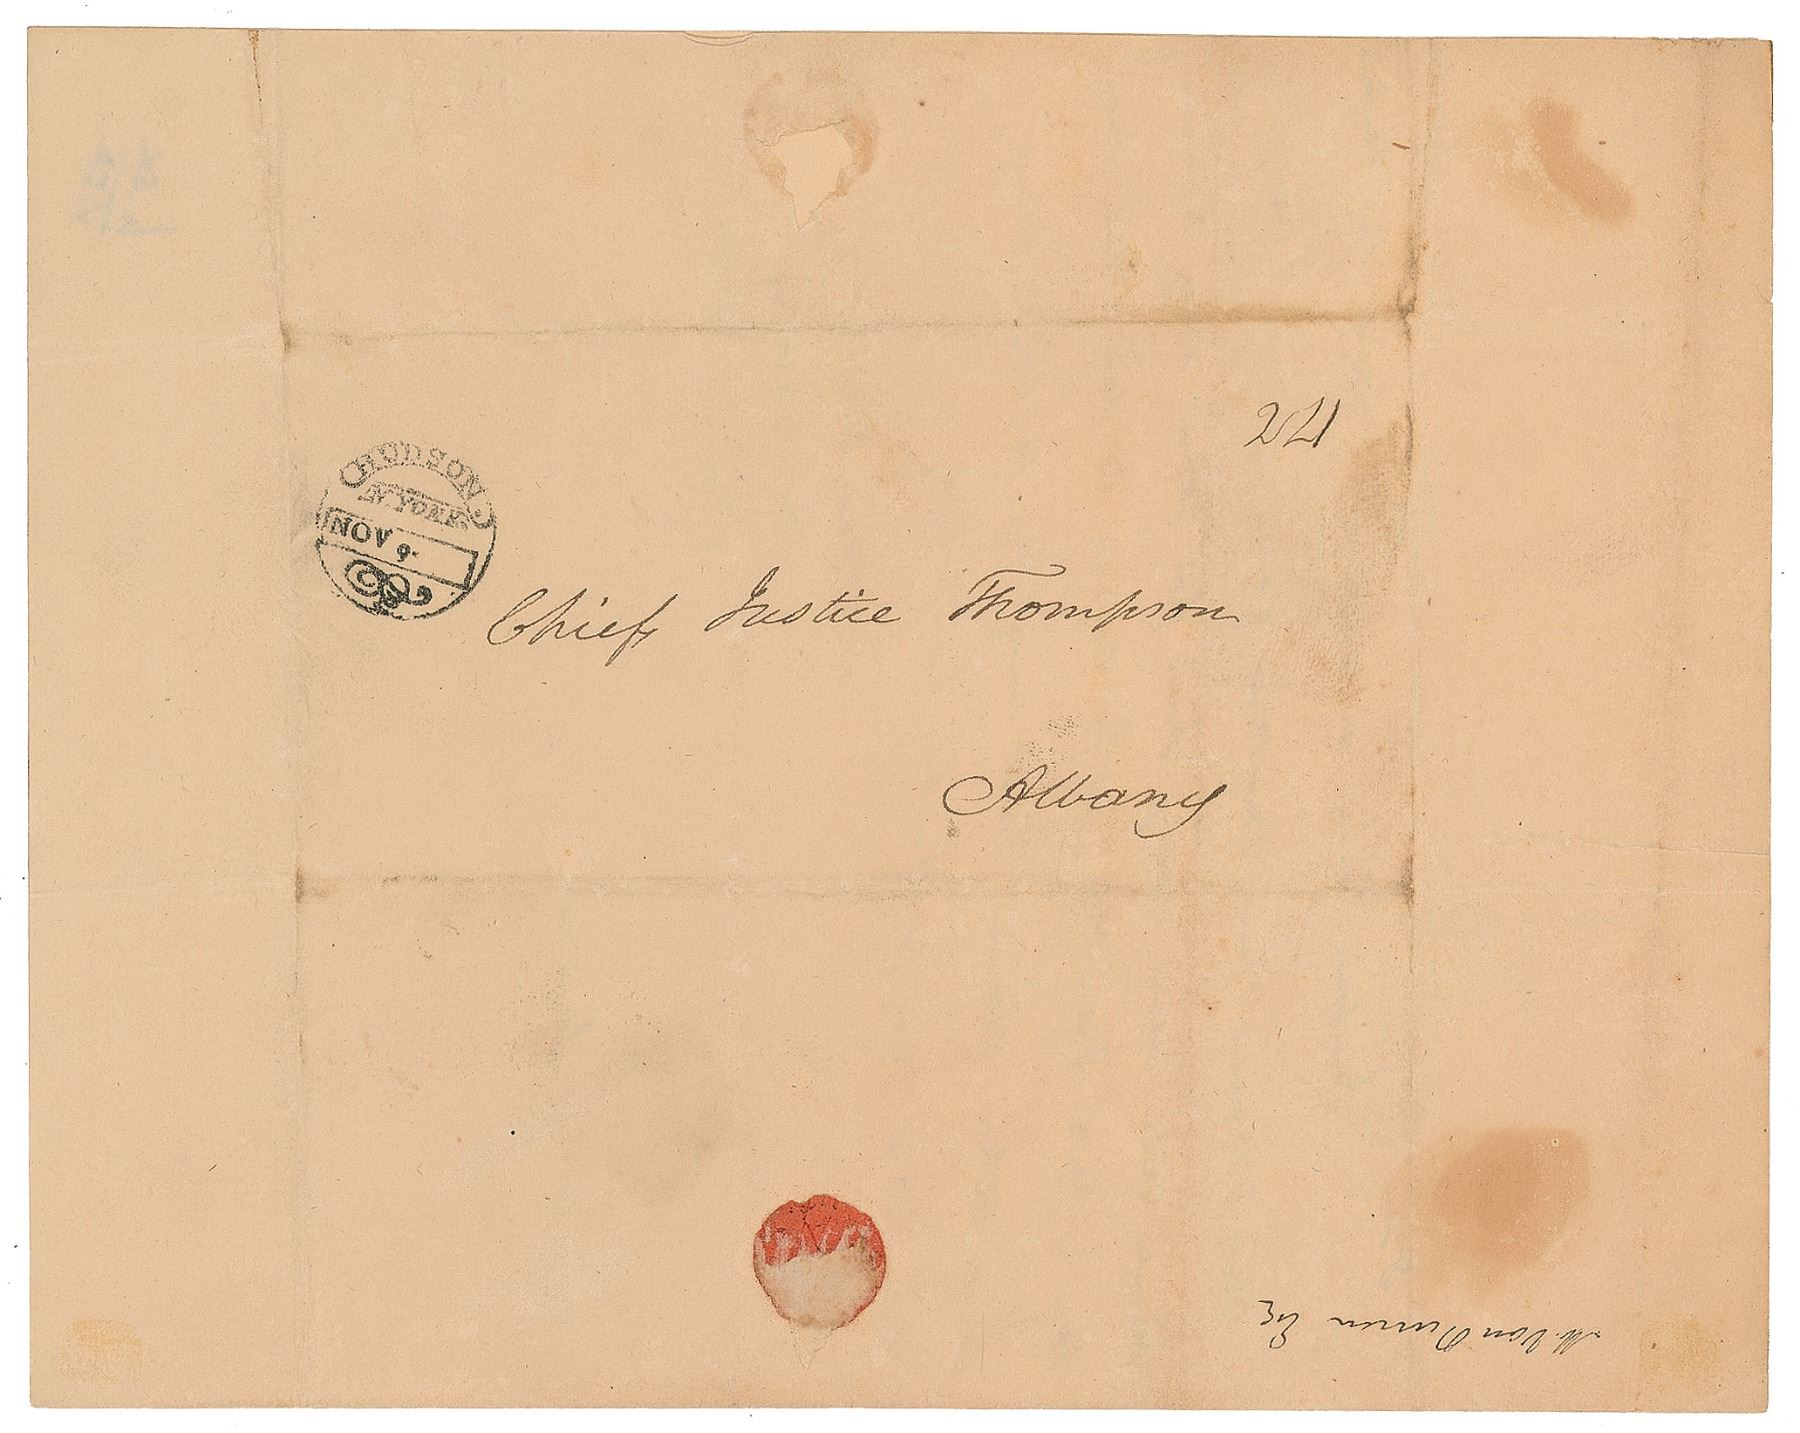 HUDSON
N YORK
NOV 9
24
Chief Justice Thompson
Albany
M. Van Buren Esq